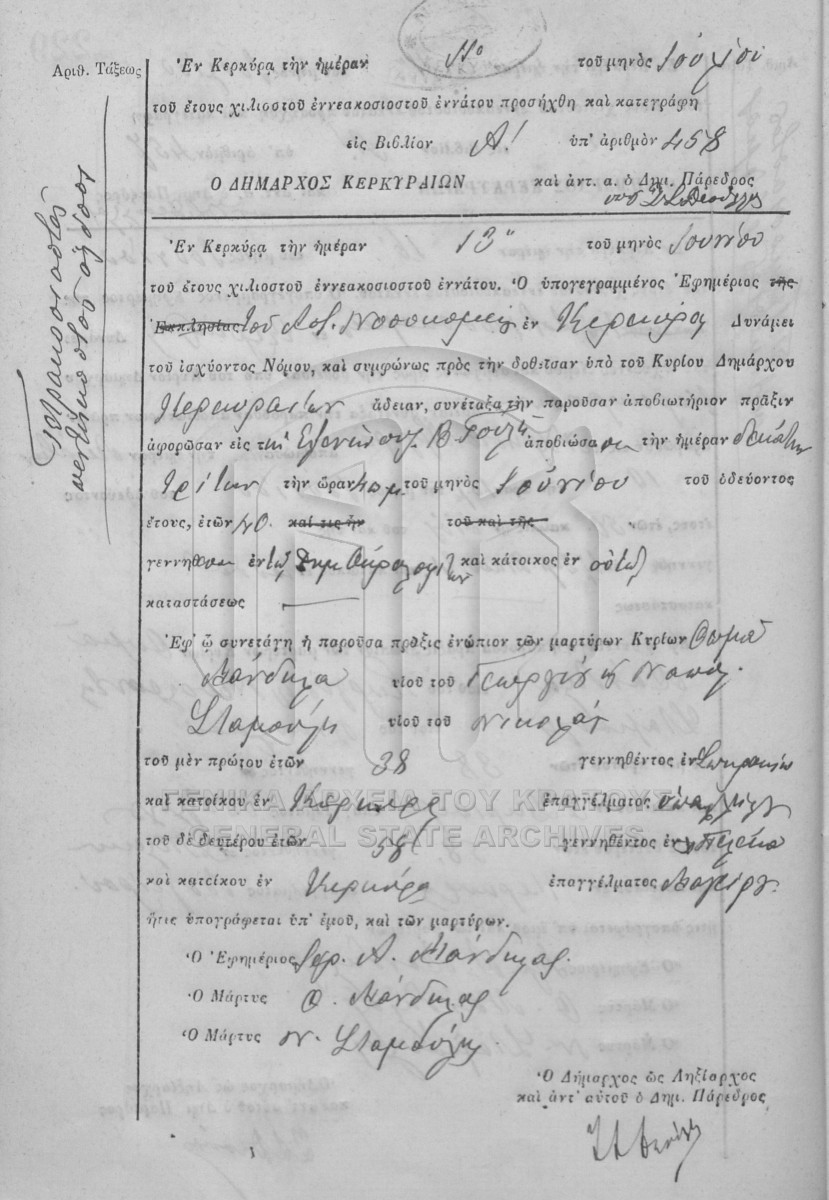 Ἀριθ. Τάξεως
Τετρακοσιοστὸς
πεντηκοστὸς ὄγδοος
Ἐν Κερκύρᾳ τὴν ἡμέραν 11η τοῦ μηνὸς Ἰουλίου
τοῦ ἔτους χιλιοστοῦ ἐννεακοσιοστοῦ ἐννάτου προσήχθη καὶ κατεγράφη
εἰς Βιβλίον Α! ὑπ' ἀριθμὸν 458
Ο ΔΗΜΑΡΧΟΣ ΚΕΡΚΥΡΑΙΩΝ καὶ ἀντ. α. ὁ Δημ. Πάρεδρος
Ἐν Κερκύρᾳ τὴν ἡμέραν 13η τοῦ μηνὸς Ἰουνίου
τοῦ ἔτους χιλιοστοῦ ἐννεακοσιοστοῦ ἐννάτου. Ὁ ὑπογεγραμμένος Ἐφημέριος τῆς
Ἐκκλησίας τοῦ Νοσοκομείου ἐν Κερκύρᾳ Δυνάμει
τοῦ ἰσχύοντος Νόμου, καὶ συμφώνως πρὸς τὴν δοθεῖσαν ὑπὸ τοῦ Κυρίου Δημάρχου
Κερκυραίων ἄδειαν, συνέταξα τὴν παροῦσαν ἀποβιωτήριον πρᾶξιν
ἀφορῶσαν εἰς τὴν ἀποβιώσασαν τὴν ἡμέραν δεκάτην
τρίτην τὴν ὥραν 4 π.μ. τοῦ μηνὸς Ἰουνίου τοῦ ὁδεύοντος
ἔτους, ἐτῶν 40. καὶ τις ἦν τοῦ καὶ τῆς
γεννηθεῖσαν ἐν τῷ καὶ κάτοικος ἐν
καταστάσεως —
Ἐφ' ᾧ συνετάγη ἡ παροῦσα πρᾶξις ἐνώπιον τῶν μαρτύρων Κυρίων Θωμᾶ
Μάνδηλα υἱοῦ τοῦ Γεωργίου
Σταμούλη υἱοῦ τοῦ Νικολάου
τοῦ μὲν πρώτου ἐτῶν 38 γεννηθέντος ἐν Σωκρακίῳ
καὶ κατοίκου ἐν Κερκύρᾳ ἐπαγγέλματος
τοῦ δὲ δευτέρου ἐτῶν 58 γεννηθέντος ἐν Πέλεκα
καὶ κατοίκου ἐν Κερκύρᾳ ἐπαγγέλματος Μάγειρος.
ἥτις ὑπογράφεται ὑπ' ἐμοῦ, καὶ τῶν μαρτύρων.
Ὁ Ἐφημέριος Ἱερ. Α. Μάνδηλας.
Ὁ Μάρτυς Θ. Μάνδηλας
Ὁ Μάρτυς Ν. Σταμούλης
Ὁ Δήμαρχος ὡς Ληξίαρχος
καὶ ἀντ' αὐτοῦ ὁ Δημ. Πάρεδρος
ΓΕΝΙΚΑ ΑΡΧΕΙΑ ΤΟΥ ΚΡΑΤΟΥΣ
GENERAL STATE ARCHIVES